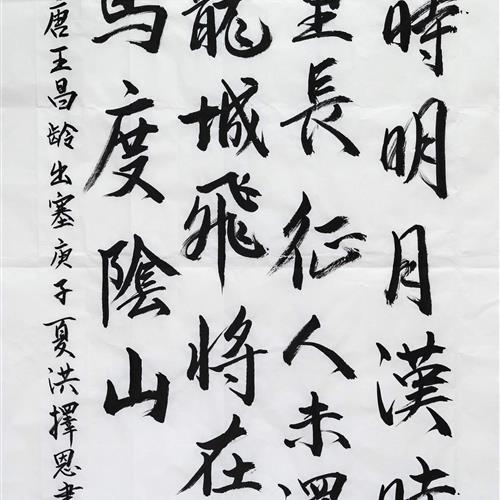 時明月漢時
里長征人未還
龍城飛將在
馬度陰山
唐王昌龄出塞庚子夏洪擇恩書